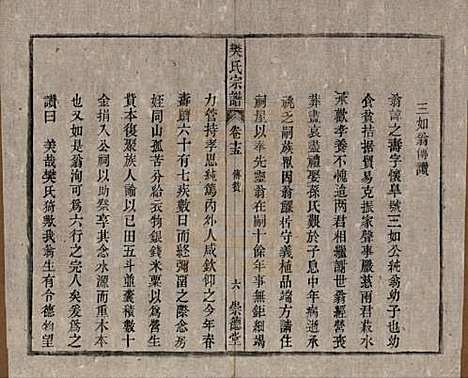 三如翁傳讚
翁諱之壽字懷卑號三如公純翁幼子也幼
食貧拮据貿易克振家聲事嚴慈兩君菽水
承歡孝養不匱追兩君相繼謝世翁經營喪
葬盡哀盡禮娶孫氏艱於子息中年病逝承
祧之嗣族眾因翁謹恪守義植品端方請住
嗣星以奉先靈翁在嗣十餘年事無鉅細竭
力管持孝思純篤內外人咸欽仰之今年春
壽臍六十有七疾數日終彌留之際念房
姪同山辛苦分給衣物銀錢米粟以為營生
貲本復聚族人人定以田五斗並囊積數十
金捐入公祠以助祭享其水源而重木本
也又如是翁洵可為六行之完人矣爰為之
讚曰 美哉樊氏猗歟我翁生有令德物望
樊氏宗譜
卷十五 傳贊
六 崇德堂